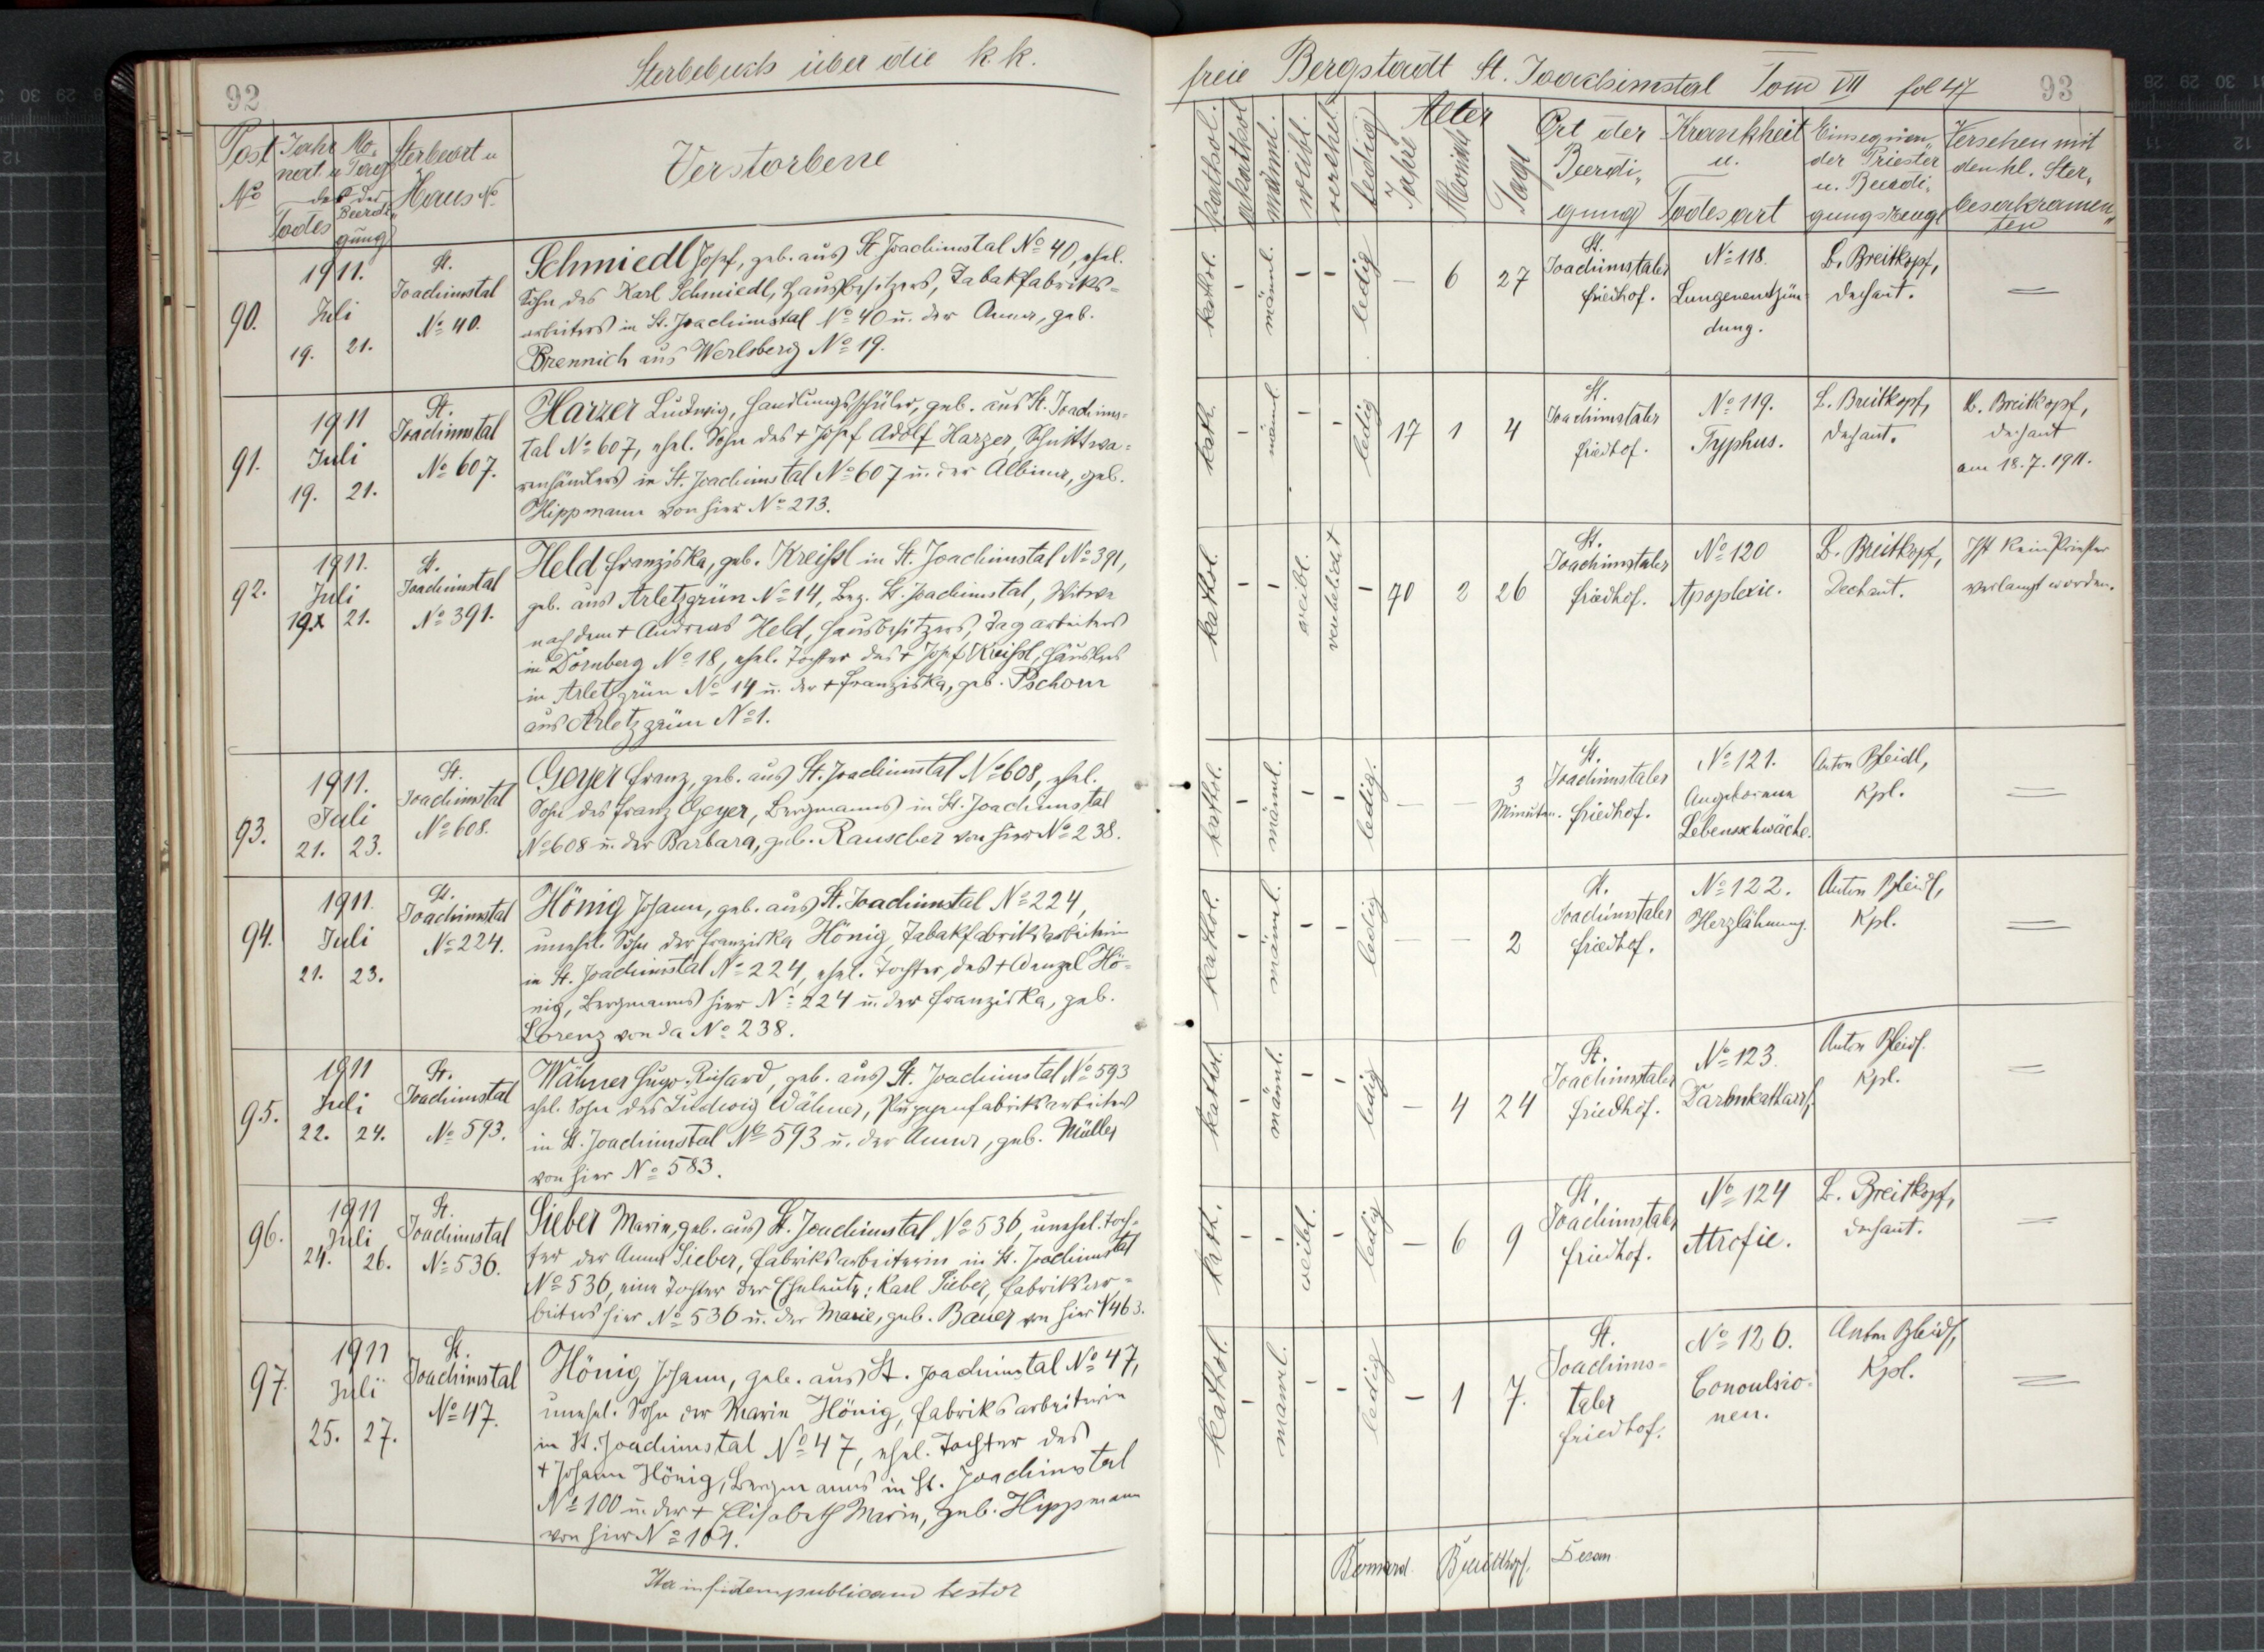 92
Sterbebuch über die k. k.
Post No
Jahr Mo-
nat u Tag
des der
Todes
Beerdi-
gung
Sterbeort u
Haus No
Verstorbene
90.
1911.
Juli
19. 21.
St.
Joachimstal
No 40.
Schmiedl Josef, geb. aus St Joachimstal No 40, ehel.
Sohn des Karl Schmiedl, Hausbesitzers, Tabakfabriks-
arbeiters in St. Joachimstal No 40 u. der Anna, geb.
Brennich aus Werlsberg No 19.
91.
1911
Juli
19. 21.
St.
Joachimstal
No 607.
Harzer Ludwig, Handlungsschüler, geb. aus St. Joachims-
tal No 607, ehel. Sohn des + Josef Adolf Harzer, Schnittwa-
renhändlers in St. Joachimstal No 607 u. der Albina, geb.
Hippmann von hier No 213.
92.
1911.
Juli
19. 21.
St.
Joachimstal
No 391.
Held Franziska, geb. Kreißl in St. Joachimstal No 391,
geb. aus Arletzgrün No 14, Bez. St. Joachimstal, Witwe
nach dem + Andreas Held, Hausbesitzers, Tagarbeiters
in Dörnberg No 18, ehel. Tochter des + Josef Kreißl, Häuslers
in Arletzgrün No 14 u. der + Franziska, geb. Pschorn
aus Arletzgrün No 1.
93.
1911.
Juli
21. 23.
St.
Joachimstal
No 608.
Geyer Franz, geb. aus St. Joachimstal No 608, ehel.
Sohn des Franz Geyer, Bergmanns in St. Joachimstal
No 608 u. der Barbara, geb. Rauscher von hier No 238.
94.
1911.
Juli
21. 23.
St.
Joachimstal
No 224.
Hönig Johann, geb. aus St. Joachimstal No 224,
unehel. Sohn der Franziska Hönig, Tabakfabriksarbeiterin
in St. Joachimstal No 224, ehel. Tochter des + Wenzel Hö-
nig, Bergmanns hier No 224 u. der Franziska, geb.
Lorenz von da No 238.
95.
1911
Juli
22. 24.
St.
Joachimstal
No 593.
Wähner Hugo Richard, geb. aus St. Joachimstal No 593
ehel. Sohn des Ludwig Wähner, Puppenfabriksarbeiters
in St. Joachimstal No 593 u. der Anna, geb. Müller
von hier No 583.
96.
1911
Juli
24. 26.
St.
Joachimstal
No 536.
Sieber Marie, geb. aus St. Joachimstal No 536, unehel. Toch-
ter der Anna Sieber, Fabriksarbeiterin in St. Joachimstal
No 536, eine Tochter der Eheleute: Karl Sieber, Fabriksar-
beiters hier No 536 u. der Marie, geb. Bauer von hier No 463.
97.
1911
Juli
25. 27.
St.
Joachimstal
No 47.
Hönig Johann, geb. aus St. Joachimstal No 47,
unehel. Sohn der Marie Hönig, Fabriksarbeiterin
in St. Joachimstal No 47, ehel. Tochter des
+ Johann Hönig, Bergmanns in St. Joachimstal
No 100 u. der + Elisabeth Marie, geb. Hippmann
von hier No 104.
Ita in fidem publicam testor
freie Bergstadt St. Joachimstal Tom VII fol 47
93
kathol.
akathol
männl.
weibl.
verehel.
ledig
Alter
Jahre
Monate
Tage
Ort der
Beerdi-
gung
Krankheit
u.
Todesart
Einsegnen-
der Priester
u. Beerdi-
gungszeuge
Versehen mit
den hl. Ster-
besakramen-
ten
kathol. - männl. - - ledig — 6 27
St.
Joachimstaler
Friedhof.
No 118.
Lungenentzün-
dung.
B. Breitkopf,
Dechant.
kath. - männl. - - ledig 17 1 4
St.
Joachimstaler
Friedhof.
No 119.
Typhus.
B. Breitkopf,
Dechant.
B. Breitkopf,
Dechant
am 18. 7. 1911.
kathol. - - weibl. verehelicht - 70 2 26
St.
Joachimstaler
Friedhof.
No 120
Apoplexie.
B. Breitkopf,
Dechant.
Ist kein Priester
verlangt worden.
kathol. - männl. - - ledig. — — 3
Minuten.
St.
Joachimstaler
Friedhof.
No 121.
Angeborene
Lebensschwäche.
Anton Bleidl,
Kpl.
kathol. - männl. - - ledig — — 2
St.
Joachimstaler
Friedhof.
No 122.
Herzlähmung.
Anton Bleidl,
Kpl.
kathol. - männl. - - ledig — 4 24
St.
Joachimstaler
Friedhof.
No 123.
Darmkatharrh.
Anton Bleidl.
Kpl.
kath. - - weibl. - ledig — 6 9
St.
Joachimstaler
Friedhof.
No 124
Atrofie.
B. Breitkopf,
Dechant.
kathol. - männl. - - ledig — 1 7.
St.
Joachims-
taler
Friedhof.
No 126.
Convulsio-
nen.
Anton Bleidl,
Kpl.
Bernard Breitkopf. Decan